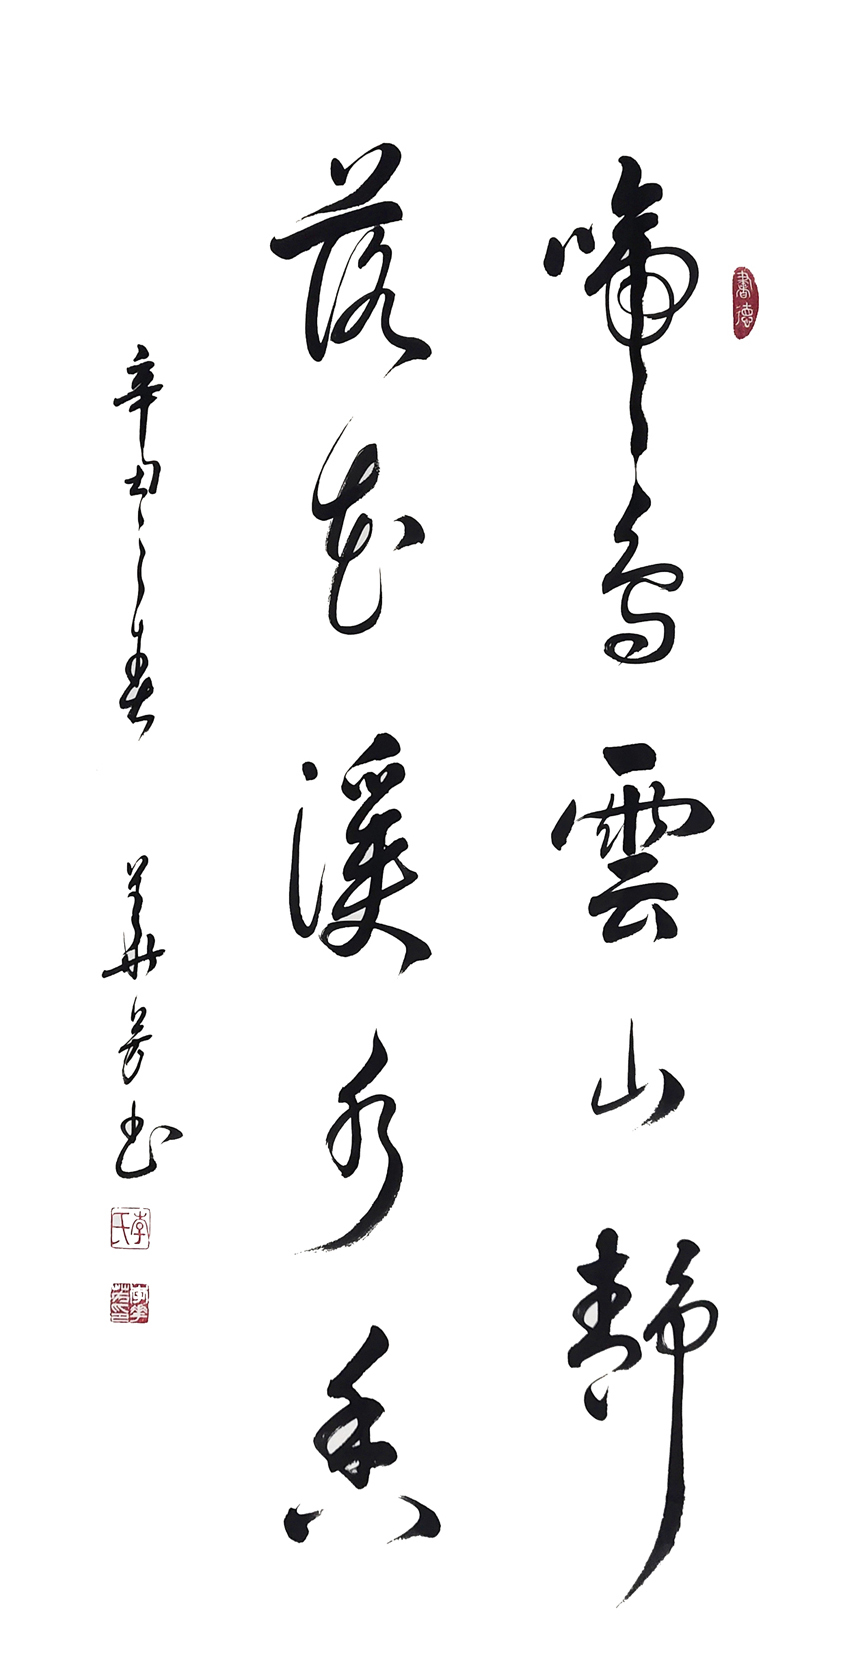 啼鳥雲山靜
落花溪水香
辛丑之春 華芳書
書德
李氏